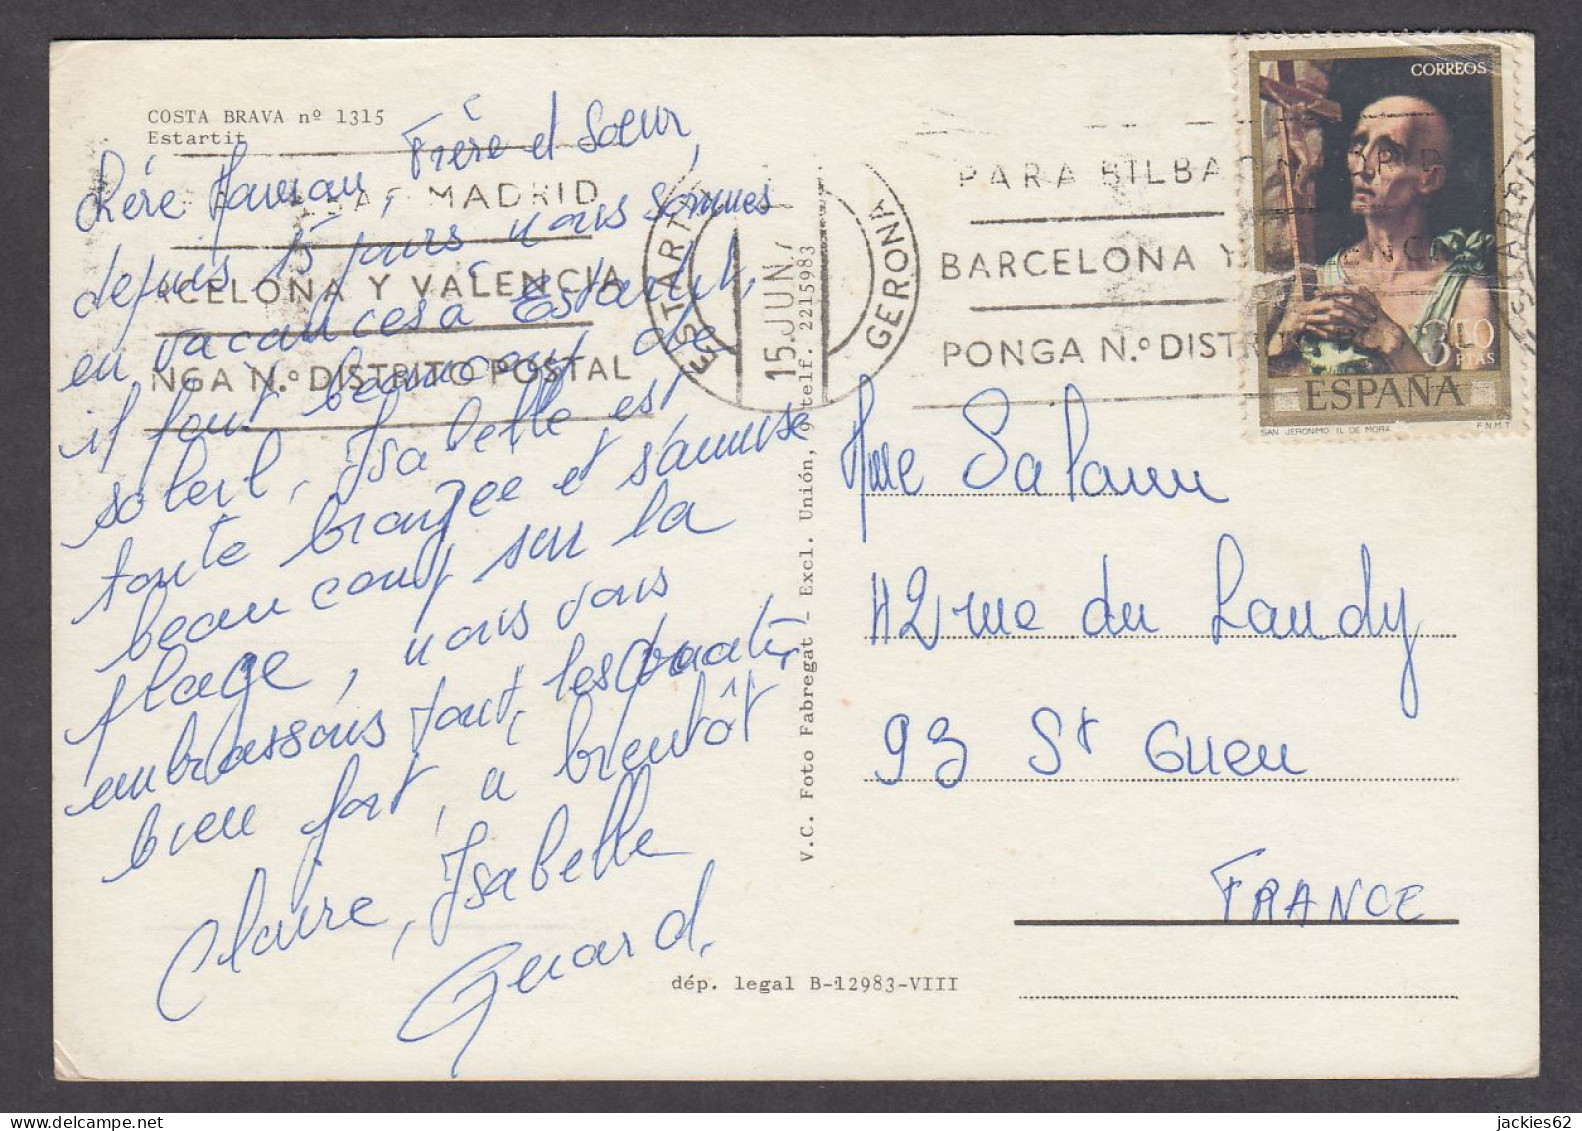 COSTA BRAVA nº 1315
Estartit
Chère Maman, Frère et Sœur,
depuis 15 jours nous sommes
en vacances à Estartit,
il fait beaucoup de
soleil, Isabelle est
toute bronzée et s'amuse
beaucoup sur la
plage, nous vous
embrassons tout les quatre
bien fort, a bientôt
Claire, Isabelle
Gerard.
MADRID
CELONA Y VALENCIA
NGA N.º DISTRITO POSTAL
ESTARTIT
15 JUN
GERONA
PARA BILBAO
BARCELONA Y VALENCIA
PONGA N.º DISTRITO POSTAL
CORREOS
3'50
PTAS
ESPAÑA
SAN JERONIMO (L. DE MORA)
F.N.M.T.
V.C. Foto Fabregat - Excl. Unión, 9 telf. 2215983
Mme Salaun
42 rue du Landy
93 St Ouen
FRANCE
dép. legal B-12983-VIII
jackies62